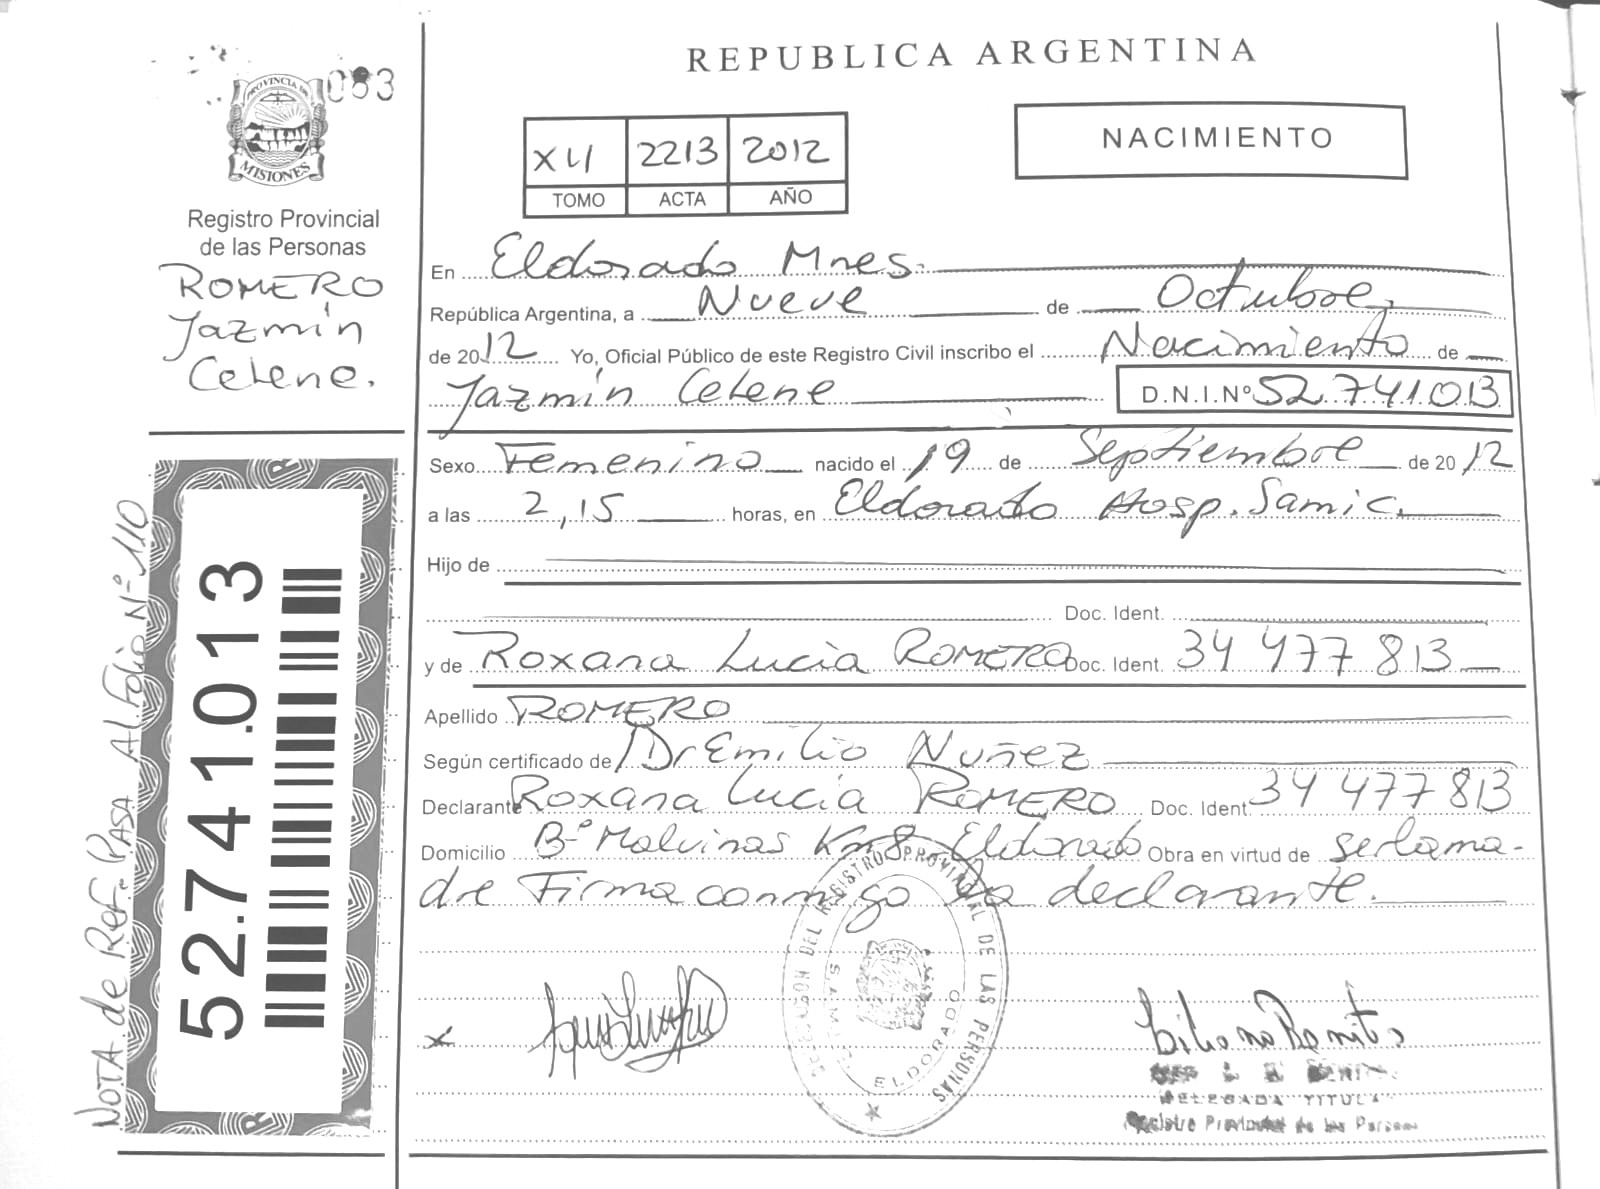 083
PROVINCIA DE
MISIONES
Registro Provincial
de las Personas
ROMERO
Jazmín
Celene.
NOTA de Ref. PASA AL Folio Nº 110
52.741.013
REPUBLICA ARGENTINA
NACIMIENTO
2213 2012
TOMO ACTA AÑO
En Eldorado Mnes.
República Argentina, a Nueve de Octubre,
de 2012 Yo, Oficial Público de este Registro Civil inscribo el Nacimiento de
Jazmín Celene D.N.I.Nº 52.741.013
Sexo Femenino nacido el 19 de Septiembre de 2012
a las 2,15 horas, en Eldorado Hosp. Samic.
Hijo de
Doc. Ident.
y de Roxana Lucia ROMERO Doc. Ident. 34 477 813
Apellido ROMERO
Según certificado de Dr Emilio Nuñez
Declarante Roxana Lucia ROMERO Doc. Ident. 34 477 813
Domicilio Bº Malvinas Km 8 Eldorado Obra en virtud de ser la ma-
dre Firma conmigo la declarante.
DEL REGISTRO PROVINCIAL DE LAS PERSONAS
ELDORADO
x
DELEGADA TITULAR
Registro Provincial de las Personas